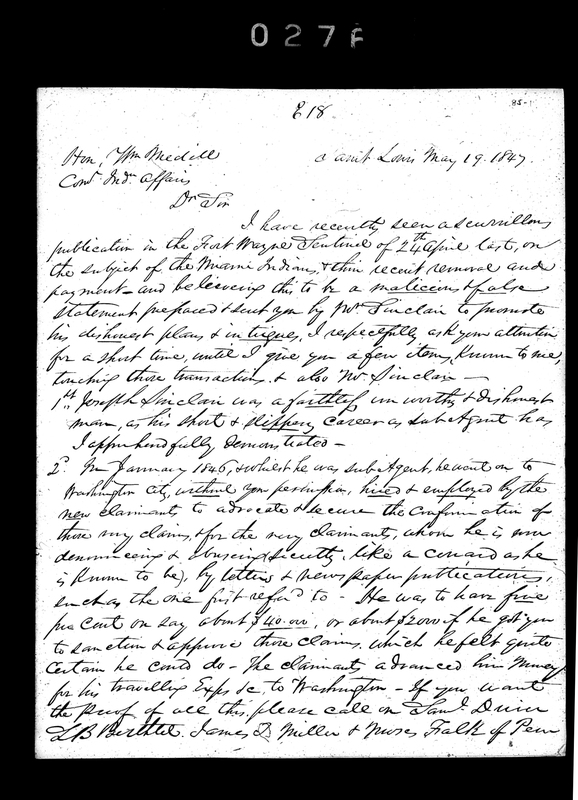 027
E18
85-1
Hon, Wm Medill
Saint Louis May 19. 1847.
Comr Indn Affairs
Dr Sir
I have recently seen a scurrillous
publication in the Fort Wayne Sentinel of 24th April last, on
the subject of the Miami Indians, & their recent removal and
payment - and believing this to be a malicious & false
statement prepared & sent you by Mr Sinclair to promote
his dishonest plans & intrigues, I respectfully ask your attention
for a short time, until I give you a few items, known to me,
touching those transactions, & also Mr Sinclair -
1st Joseph Sinclair was a faithless unworthy & dishonest
man, as his short & slippery career as sub Agent has
I apprehend fully demonstrated -
2d In January 1846, & whilst he was sub Agent, he went on to
Washington City, without your permission, hired & employed by the
new claimants to advocate & secure the confirmation of
those very claims, & for the very claimants, whom he is now
denouncing & abusing (secretly, like a coward as he
is known to be), by letters & newspaper publications,
such as the one first refer'd to - He was to have five
per cent on say about $40.000, or about $2000 if he got you
to sanction & approve those claims, which he felt quite
certain he could do - The claimants advanced him money
for his travelling Exps &c, to Washington - If you want
the proof of all this, please call on Saml.
L B Berthlet, James T Miller & Moses Falk of Peru